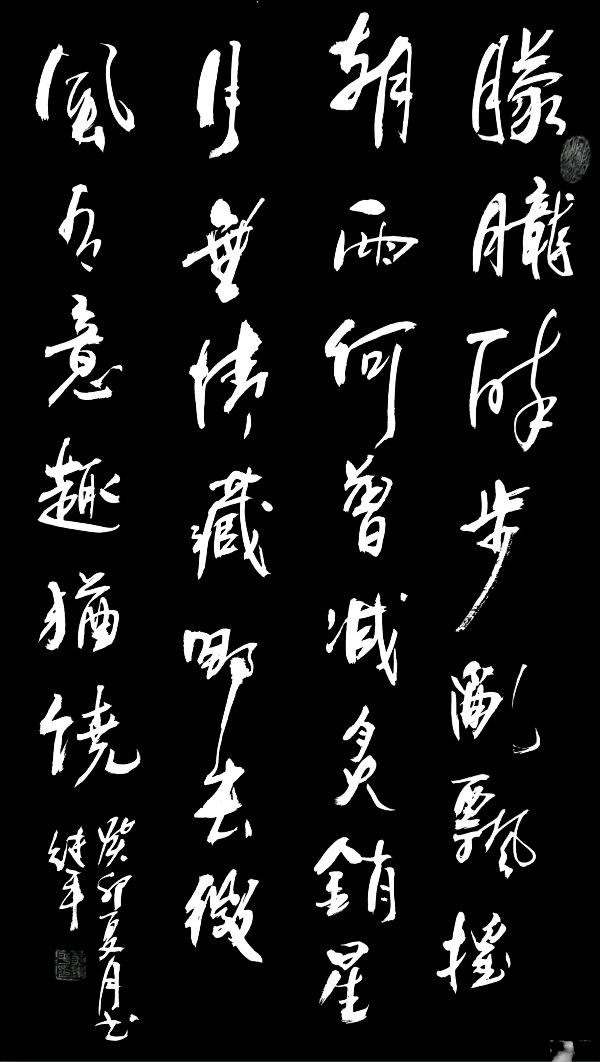 朦朧醉步亂飄搖
朝雨何曾減炙銷星
月無情藏哪去微
風有意趣猶饒
癸卯夏月書